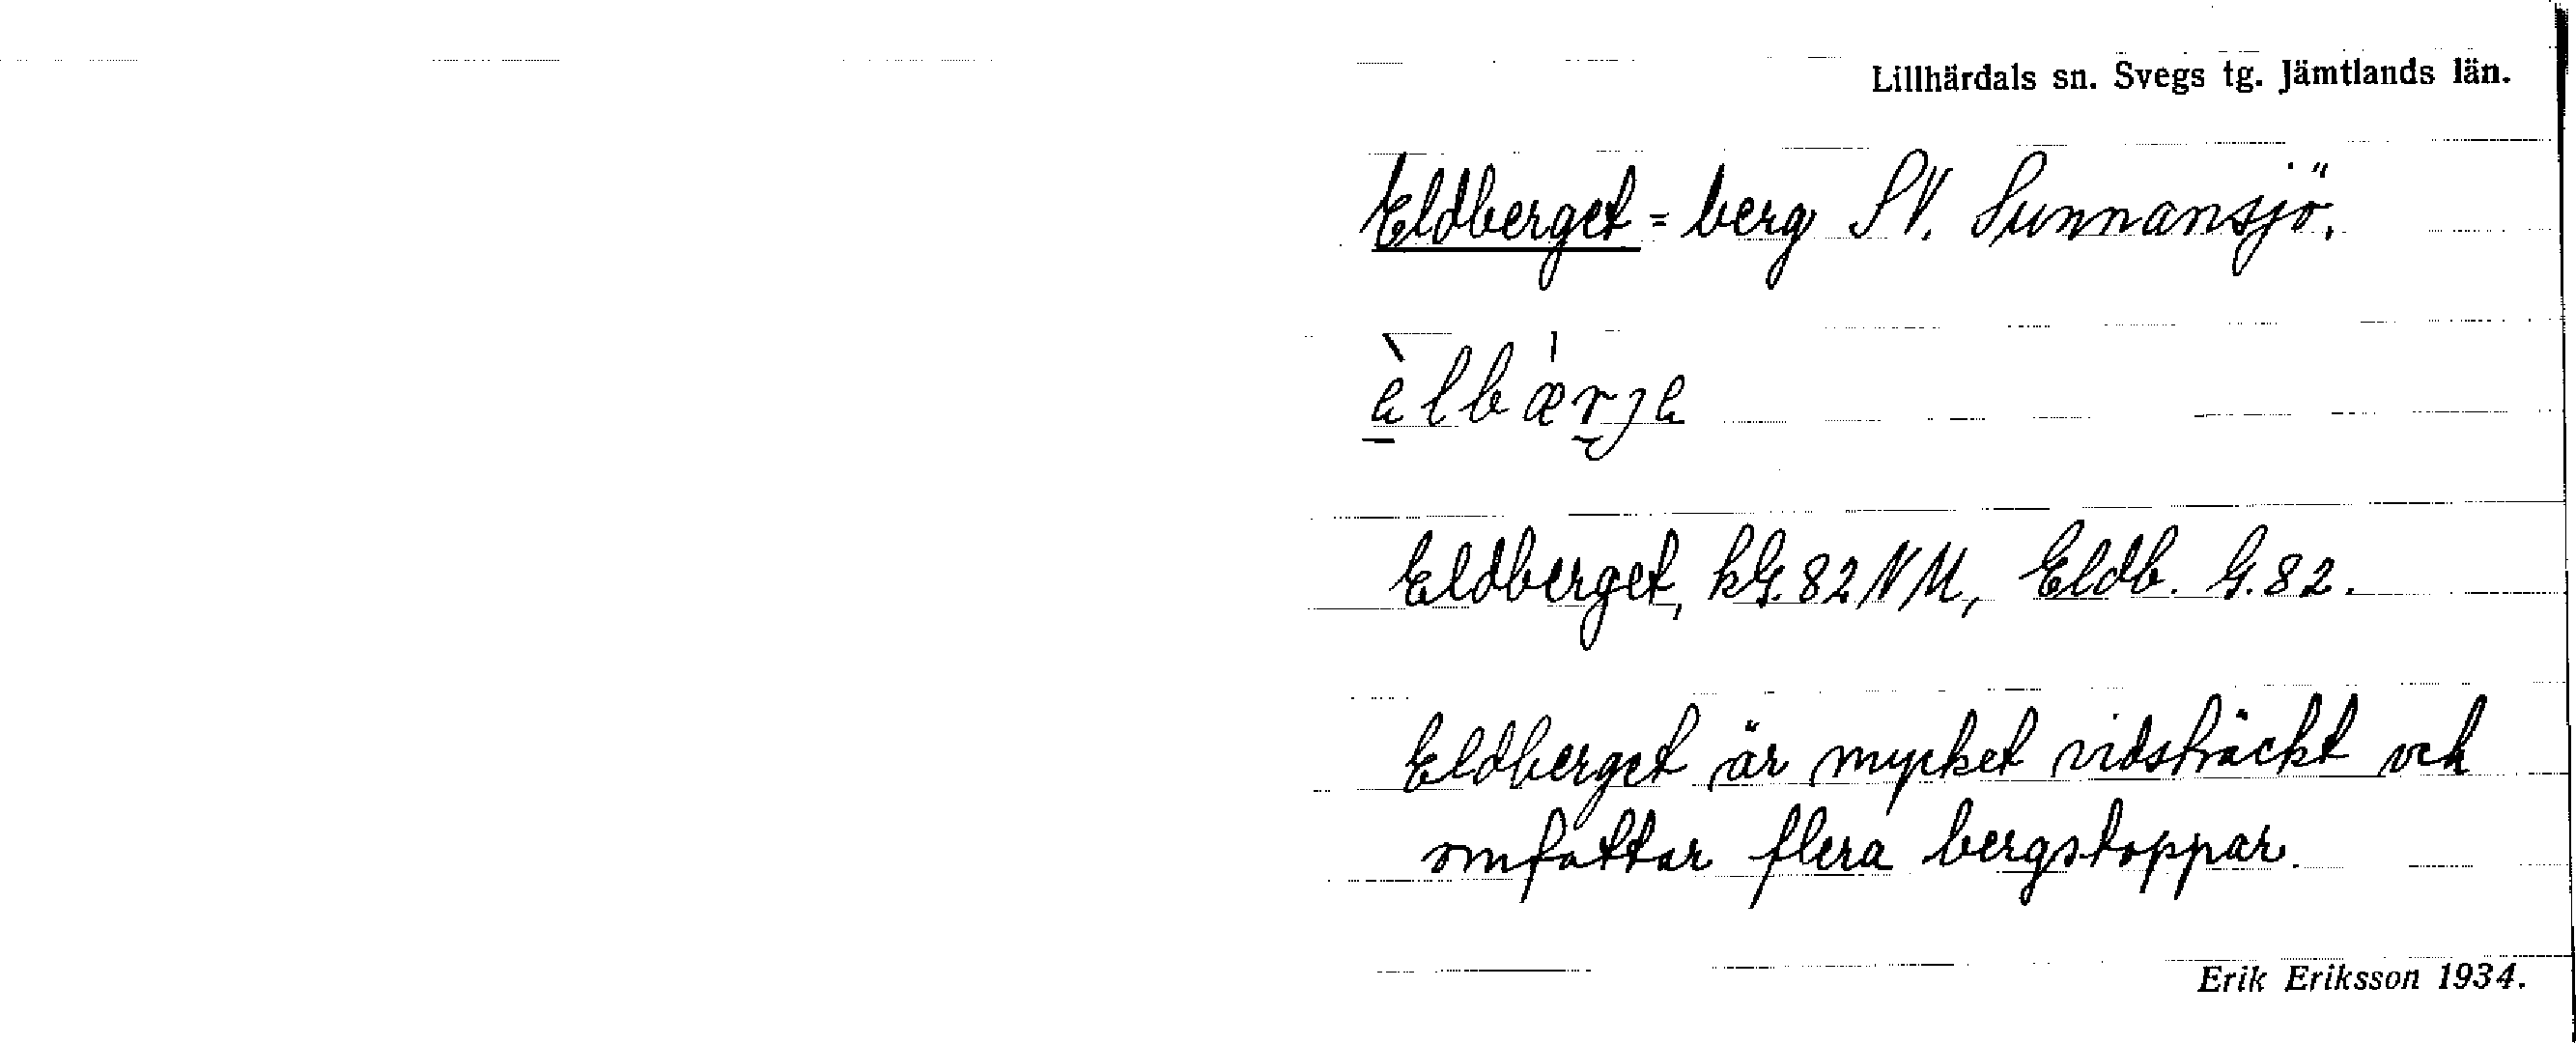 Lillhärdals sn. Svegs tg. Jämtlands län.
Eldberget = berg SV. Sunnansjö.
è̱lbæ̍r̯ɟe
Eldberget, kG. 82 NM, Eldb. G. 82.
Eldberget är mycket vidsträckt och
omfattar flera bergstoppar.
Erik Eriksson 1934.